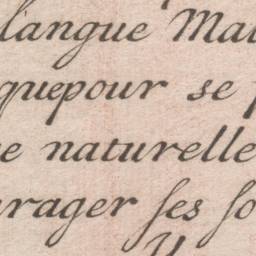 langue Mal
quepour se
e naturelle
rager ses so